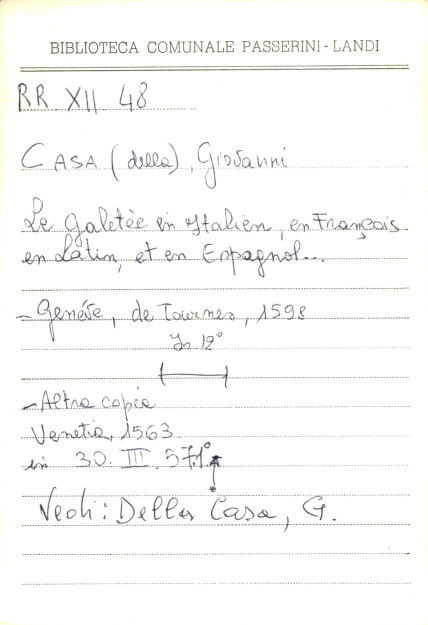 BIBLIOTECA COMUNALE PASSERINI - LANDI
RR XII 48
CASA (della), Giovanni
Le Galetèe en Italien, en François
en Latin, et en Espagnol...
- Genéve, de Tournes, 1598
In 12°
- Altra copia
Venetia, 1563
in 30. III. 571°
Vedi: Della Casa, G.